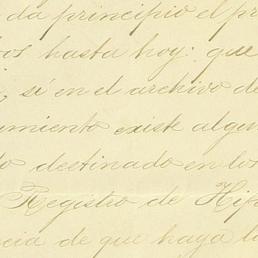 da principio el pr
os hasta hoy: que
, sé en el archivo de
umiento existe algun
o destinado en los
Registro de Hip
cia de que haya l